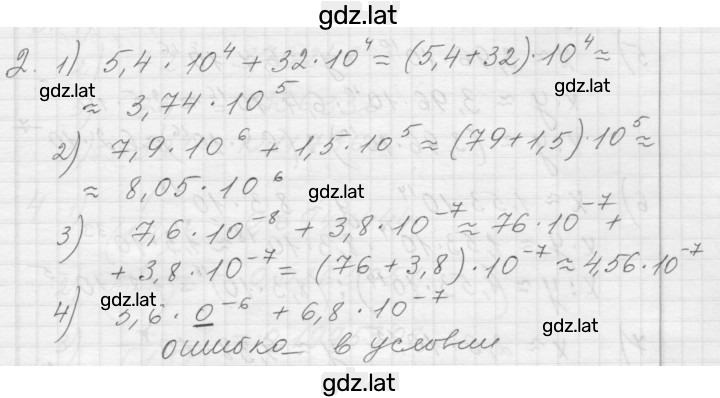 gdz.lat
2. 1) 5,4 · 10⁴ + 32 · 10⁴ = (5,4 + 32) · 10⁴ ≈
gdz.lat gdz.lat
≈ 3,74 · 10⁵
2) 7,9 · 10⁶ + 1,5 · 10⁵ ≈ (79 + 1,5) · 10⁵ ≈
≈ 8,05 · 10⁶ gdz.lat
3) 7,6 · 10⁻⁸ + 3,8 · 10⁻⁷ ≈ 76 · 10⁻⁷ +
+ 3,8 · 10⁻⁷ = (76 + 3,8) · 10⁻⁷ ≈ 4,56 · 10⁻⁷
gdz.lat
4) 5,6 · 0⁻⁶ + 6,8 · 10⁻⁷
gdz.lat
ошибка в условии
gdz.lat